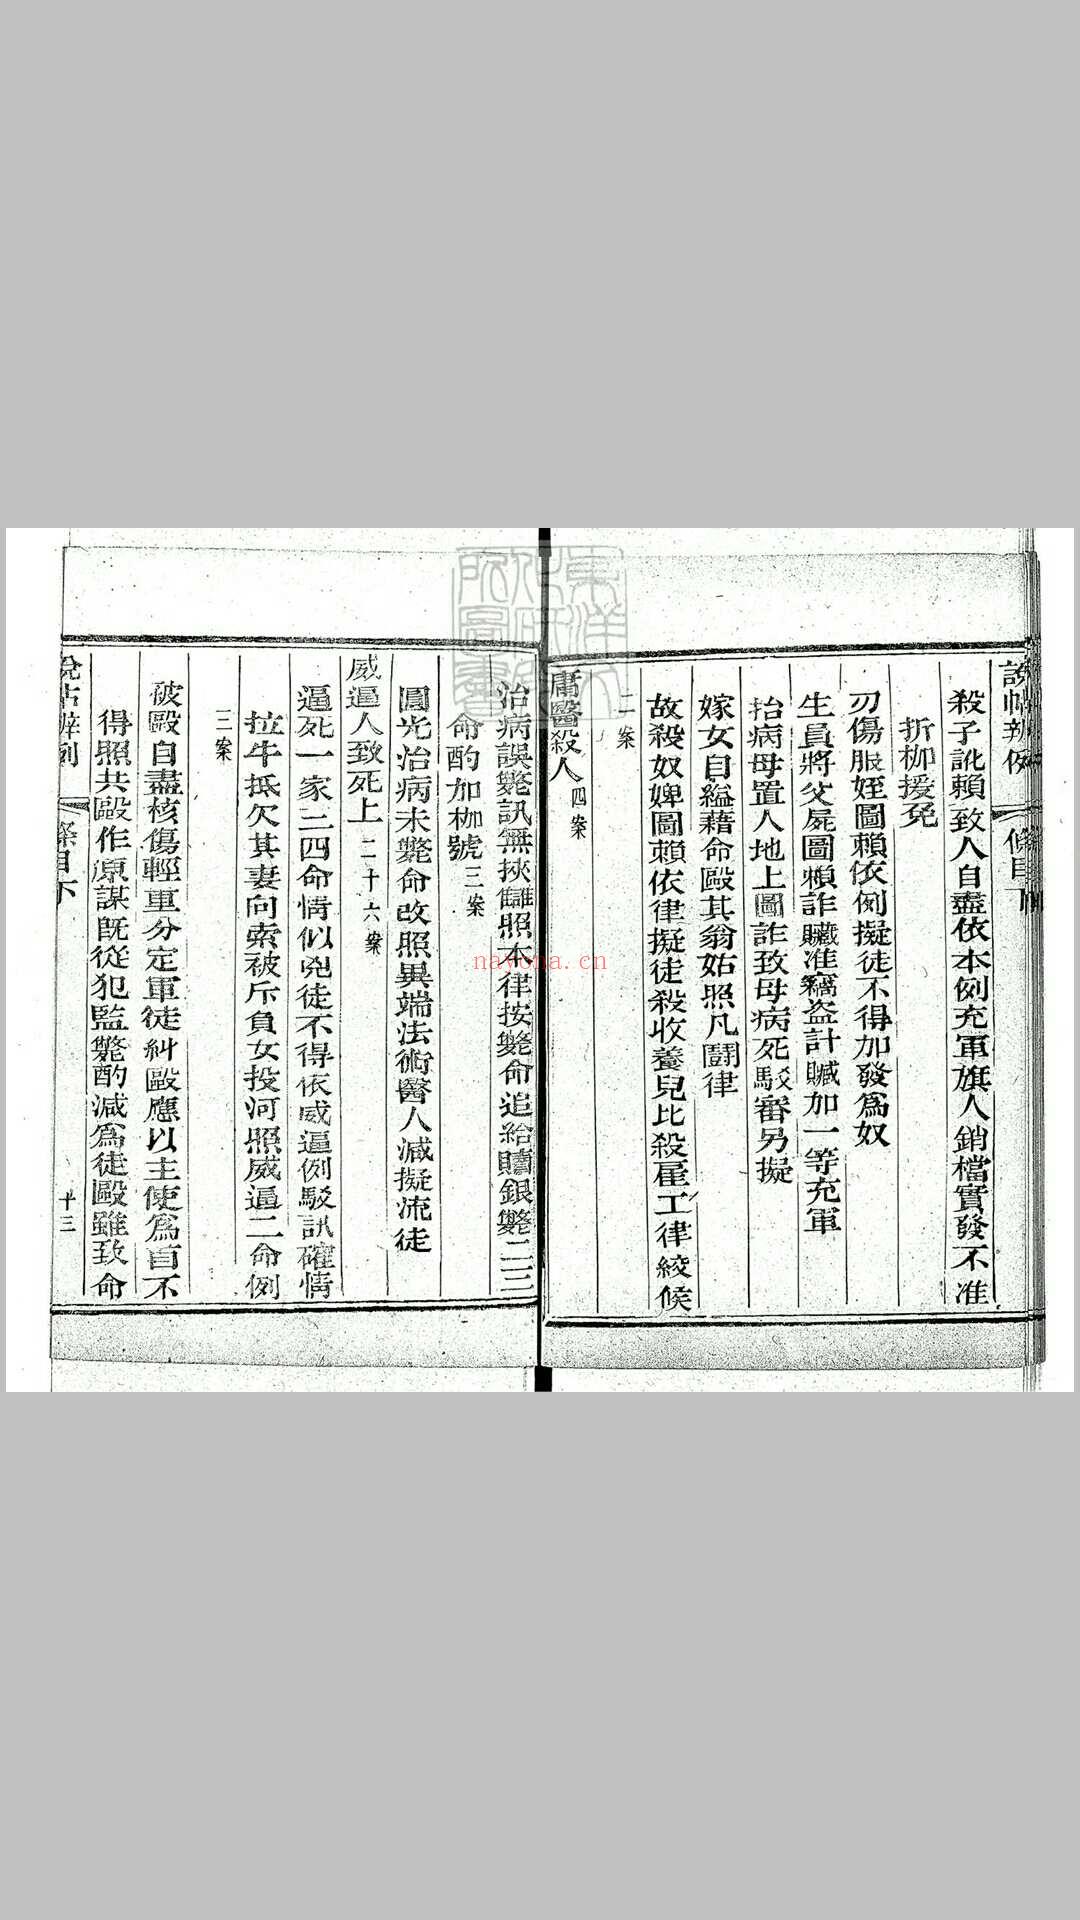 說帖辨例 條目下
殺子訛賴致人自盡依本例充軍旗人銷檔實發不准
折枷援免
刃傷胞姪圖賴依例擬徒不得加發爲奴
生員將父屍圖賴詐贓准竊盜計贓加一等充軍
抬病母置人地上圖詐致母病死駁審另擬
嫁女自縊藉命毆其翁姑照凡鬭律
故殺奴婢圖賴依律擬徒殺收養兒比殺雇工律絞候
二案
庸醫殺人 四案
治病誤斃訊無挾讎照本律按斃命追給贖銀斃二三
命酌加枷號 三案
圓光治病未斃命改照異端法術醫人減擬流徒
威逼人致死上 二十六案
逼死一家三四命情似兇徒不得依威逼例駁訊確情
拉牛抵欠其妻向索被斥負女投河照威逼二命例
三案
被毆自盡核傷輕重分定軍徒糾毆應以主使爲首不
得照共毆作原謀旣從犯監斃酌減爲徒毆雖致命
說帖辨例 條目下 十三
nayona.cn